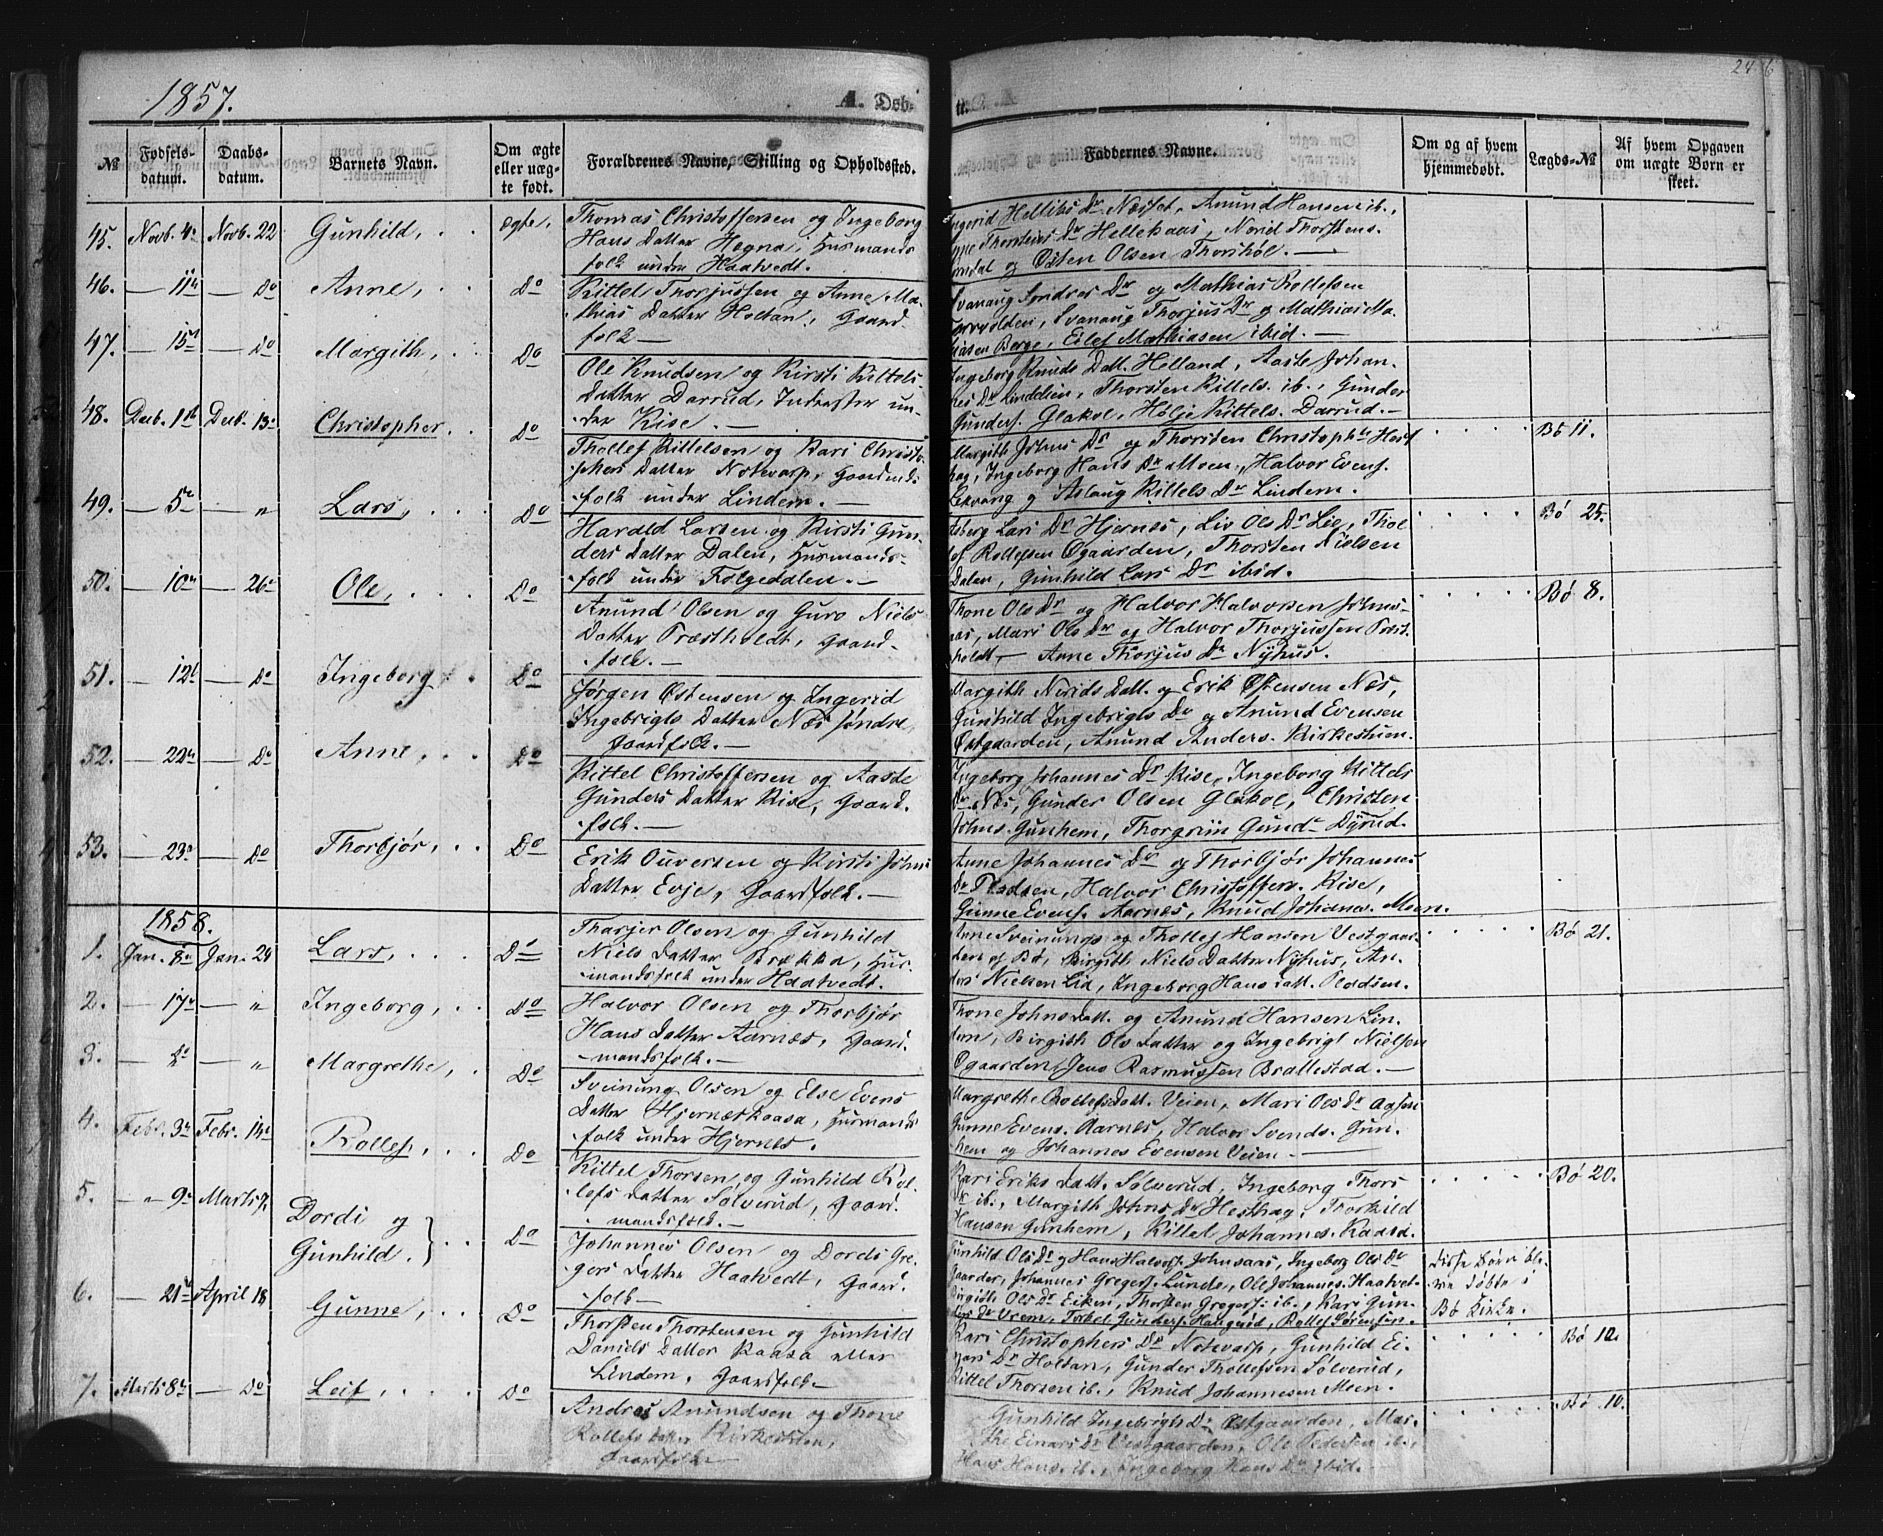 1857.
A. Døb-
te.
246
№
Fødsels-
datum.
Daabs-
datum.
Barnets Navn.
Om ægte
eller uæg-
te født.
Forældrenes Navne, Stilling og Opholdssted.
Faddernes Navne.
Om og af hvem
hjemmedøbt.
Lægds-№
Af hvem Opgaven
om uægte Børn er
skeet.
45. Novb. 4 Novb. 22 Gunhild, ægte,
Thomas Christoffersen og Ingeborg
Hans Datter Hegna, Husmands
folk under Haatvedt.
Ingerid Helliks Dr Næsset, Anund Hansen ib.,
Thorsteins Dr Hellekaas, Nerid Thorstens.
og Østen Olsen Thorshol. —
46. — 11 — Do Anne, Do
Kittel Thorjussen og Anne Ma-
thias Datter Holtan, Gaard-
folk —
Svanaug Sondres Dr og Mathias Rollefsen
Svanaug Thorjus Dr og Mathias Ma-
thiasen Borge, Eilef Mathiasen ibid. —
47. — 15 — Do Margith, Do
Ole Knudsen og Kirsti Kittels
Datter Darrud, Inderster un-
der Rise. —
Ingeborg Knuds Datt. Helland, Aaste Johan-
nes Dr Linddien, Thorsten Kittels. ib., Gunder
Gunders. Glakol, Holje Kittels. Darrud. —
48. Decb. 1 Decb. 13 Christopher Do
Thollef Kittelsen og Kari Christo-
phers Datter Notevarp, Gaardmands
folk under Lindem. —
Margith Johns Dr og Thorsten Christoph. Hest-
hag, Ingeborg Hans Dr Moen, Halvor Evens.
og Aslaug Kittels Dr Lindem.
Bø 11.
49. — 5 — " Lars, Do
Harald Larsen og Kirsti Gun-
ders Datter Dalen, Husmands-
folk under Folgedalen. —
Lars Dr Hjernes, Liv Ols Dr Lie, Thol-
lef Rollefsen Øgaarden, Thorsten Nielsen
Dalen, Gunhild Lars Dr ibid.
Bø 25.
50. — 10 — 26 Ole, Do
Anund Olsen og Guro Niels
Datter Præstholdt, Gaard-
folk. —
Thone Ols Dr og Halvor Halvorsen Johns-
aas, Mari Ols Dr og Halvor Thorjussen Præst-
holdt, — Anne Thorjus Dr Nyhus.
Bø 8.
51. — 12 — Do Ingeborg Do
Jørgen Østensen og Ingerid
Ingebrigts Datter Næs søndre,
Gaardfolk. —
Margith Nerids Datt. og Erik Østensen Næs,
Gunhild Ingebrigts Dr og Anund Evensen
Østgaarden, Anund Anders. Kirkestuen.
52. — 22 — Do Anne, Do
Kittel Christoffersen og Aasde
Gunders Datter Rise, Gaard-
folk. —
Ingeborg Johannes Dr Rise, Ingeborg Kittels
Dr Næs, Gunder Olsen Glakol, Christen
Johns. Gunhem, Thorgrim Gund. Dyrud.
53. — 23 — Do Thorbjør, Do
Erik Ouversen og Kirsti Johns
Datter Evje, Gaardfolk. —
Anne Johannes Dr og Thorbjør Johannes
Dr Pladsen, Halvor Christoffers. Rise,
Gunne Evens. Aarnes, Knud Johannes. Moen.
1858.
1. Jan. 8 Jan. 24 Lars, Do
Tharjer Olsen og Gunhild
Niels Datter Brekka, Hus-
mandsfolk under Haatvedt.
Anne Sveinungs og Thollef Hansen Vestgaar-
den og Bø, Birgith Niels Datter Nyhus, An-
ders Nielsen Lid, Ingeborg Hans Datt. Pladsen.
Bø 21.
2. — 17 — " Ingeborg, Do
Halvor Olsen og Thorbjør
Hans Datter Aarnæs, Gaard-
mandsfolk. —
Thone Johns Datt. og Anund Hansen Lin-
dem, Birgith Ols Datter og Ingebrigt Nielsen
Øgaarden, Jens Rasmussen Brattestad. —
3. — Do — " Margrethe, Do
Sveinung Olsen og Else Evens
Datter Hjerneskaasa, Husmands
folk under Hjernes.
Margrethe Rollefs Datt. Veien, Mari Ols Dr
Gunne Evens. Aarnes, Halvor Svends. Gun-
hem og Johannes Evensen Veien —
4. Febr. 3 Febr. 14 Rollef, Do
Kittel Thorsen og Gunhild Rol-
lefs Datter Solverud, Gaard-
mandsfolk. —
Kari Eriks Datt. Solverud, Ingeborg Thors
Dr ib., Margith Johns Dr Hesthag, Torkild
Hansen Gunhem, Kittel Johannes. Kaasa.
Bø 20.
5. " 9 Marts 7. Dordi og
Gunhild. Do
Johannes Olsen og Dordi Gre-
gers Datter Haatvedt, Gaard-
folk —
Gunhild Ols Dr og Hans Halvors. Johnsaas, Ingeborg Ols Dr
Gaarder, Johannes Gregers. Lunde, Ole Johannes. Haatvet-
Birgith Ols Dr Eiken, Thorsten Gregers. ib., Kari Gun-
ders Dr Vrem, Torkel Gunders. Haugerud, Rollef Sørensen.
Disse Børn ble-
ve døbte i
Bø Kirke.
6. — 21 April 18 Gunne, Do
Thorsten Thorstensen og Gunhild
Daniels Datter Kaasa eller
Lindem, Gaardfolk —
Kari Christophers Dr Notevarp, Gunhild Ei-
nars Dr Holtan, Gunder Thollefsen Solverud,
Kittel Thorsen ib., Knud Johannesen Moen.
Bø 12.
7. Marts 8 — Do Leif, Do
Andreas Anundsen og Thone
Rollefs Datter Kirkestuen,
Gaardfolk —
Gunhild Ingebrigts Dr Østgaarden, Mar-
the Einars Dr Vestgaarden, Ole Pedersen ib.,
Hans Hans. ib., Ingeborg Hans Dr ibid. —
Bø 10.